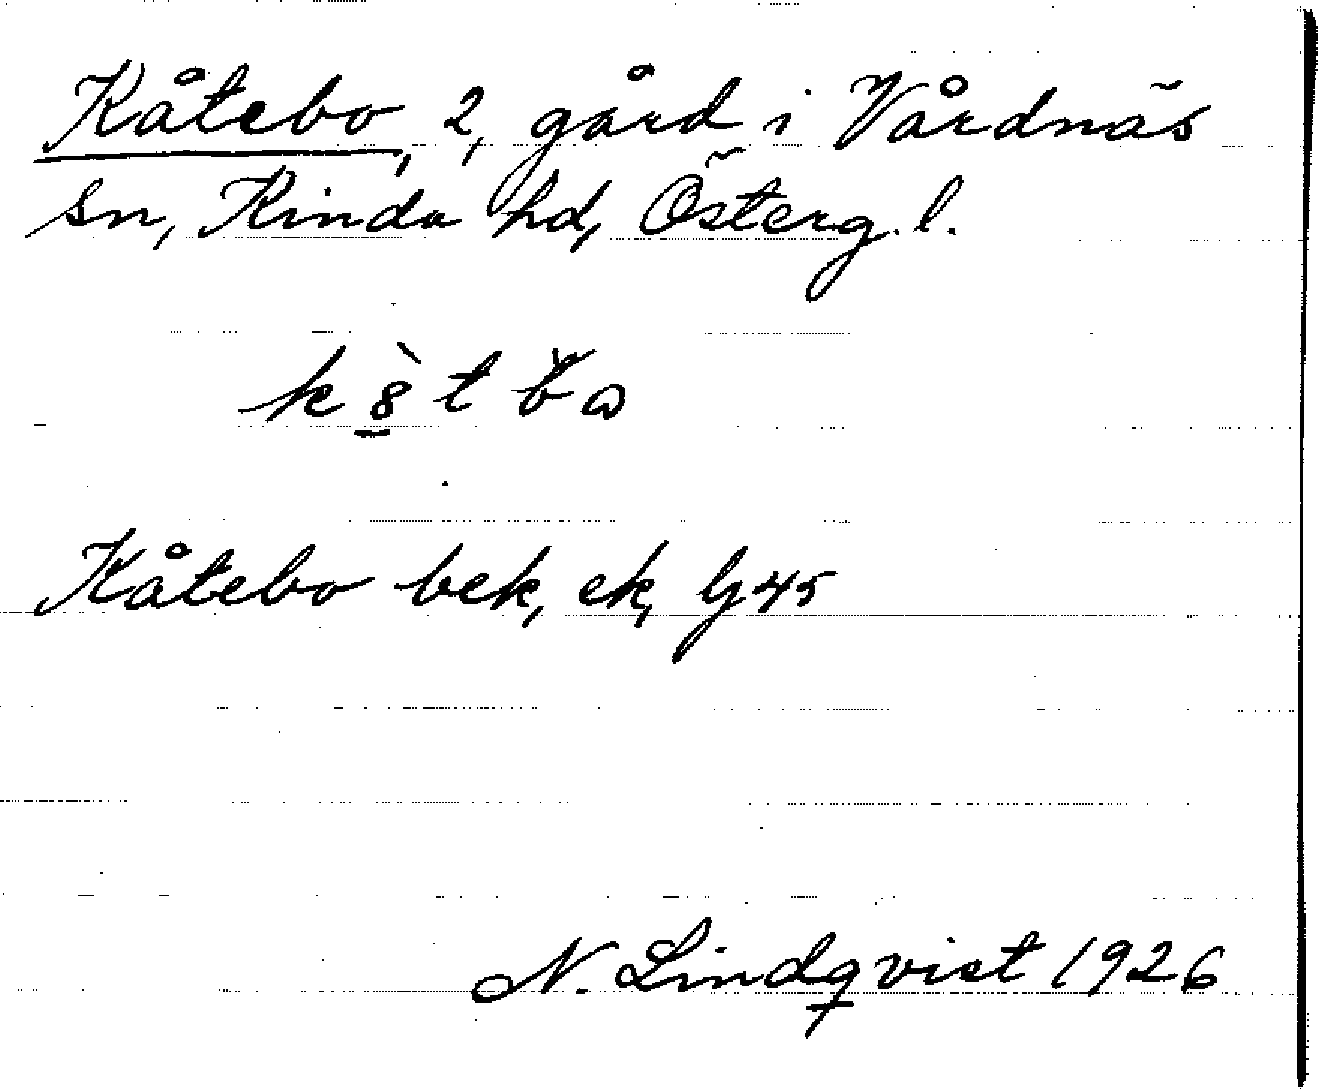 Kåtebo, 2, gård i Vårdnäs
sn, Kinda hd, Österg. l.
Kåtebo bek, ek, lj 45
N. Lindqvist 1926